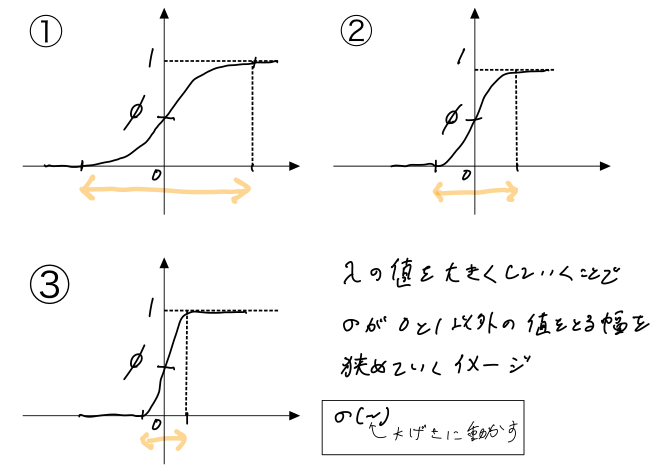 ① ②
1 1
φ φ
0 0
③
1
φ
0
λの値を大きくしていくことで
σが0と1以外の値をとる幅を
狭めていくイメージ
σ(~)
大げさに動かす